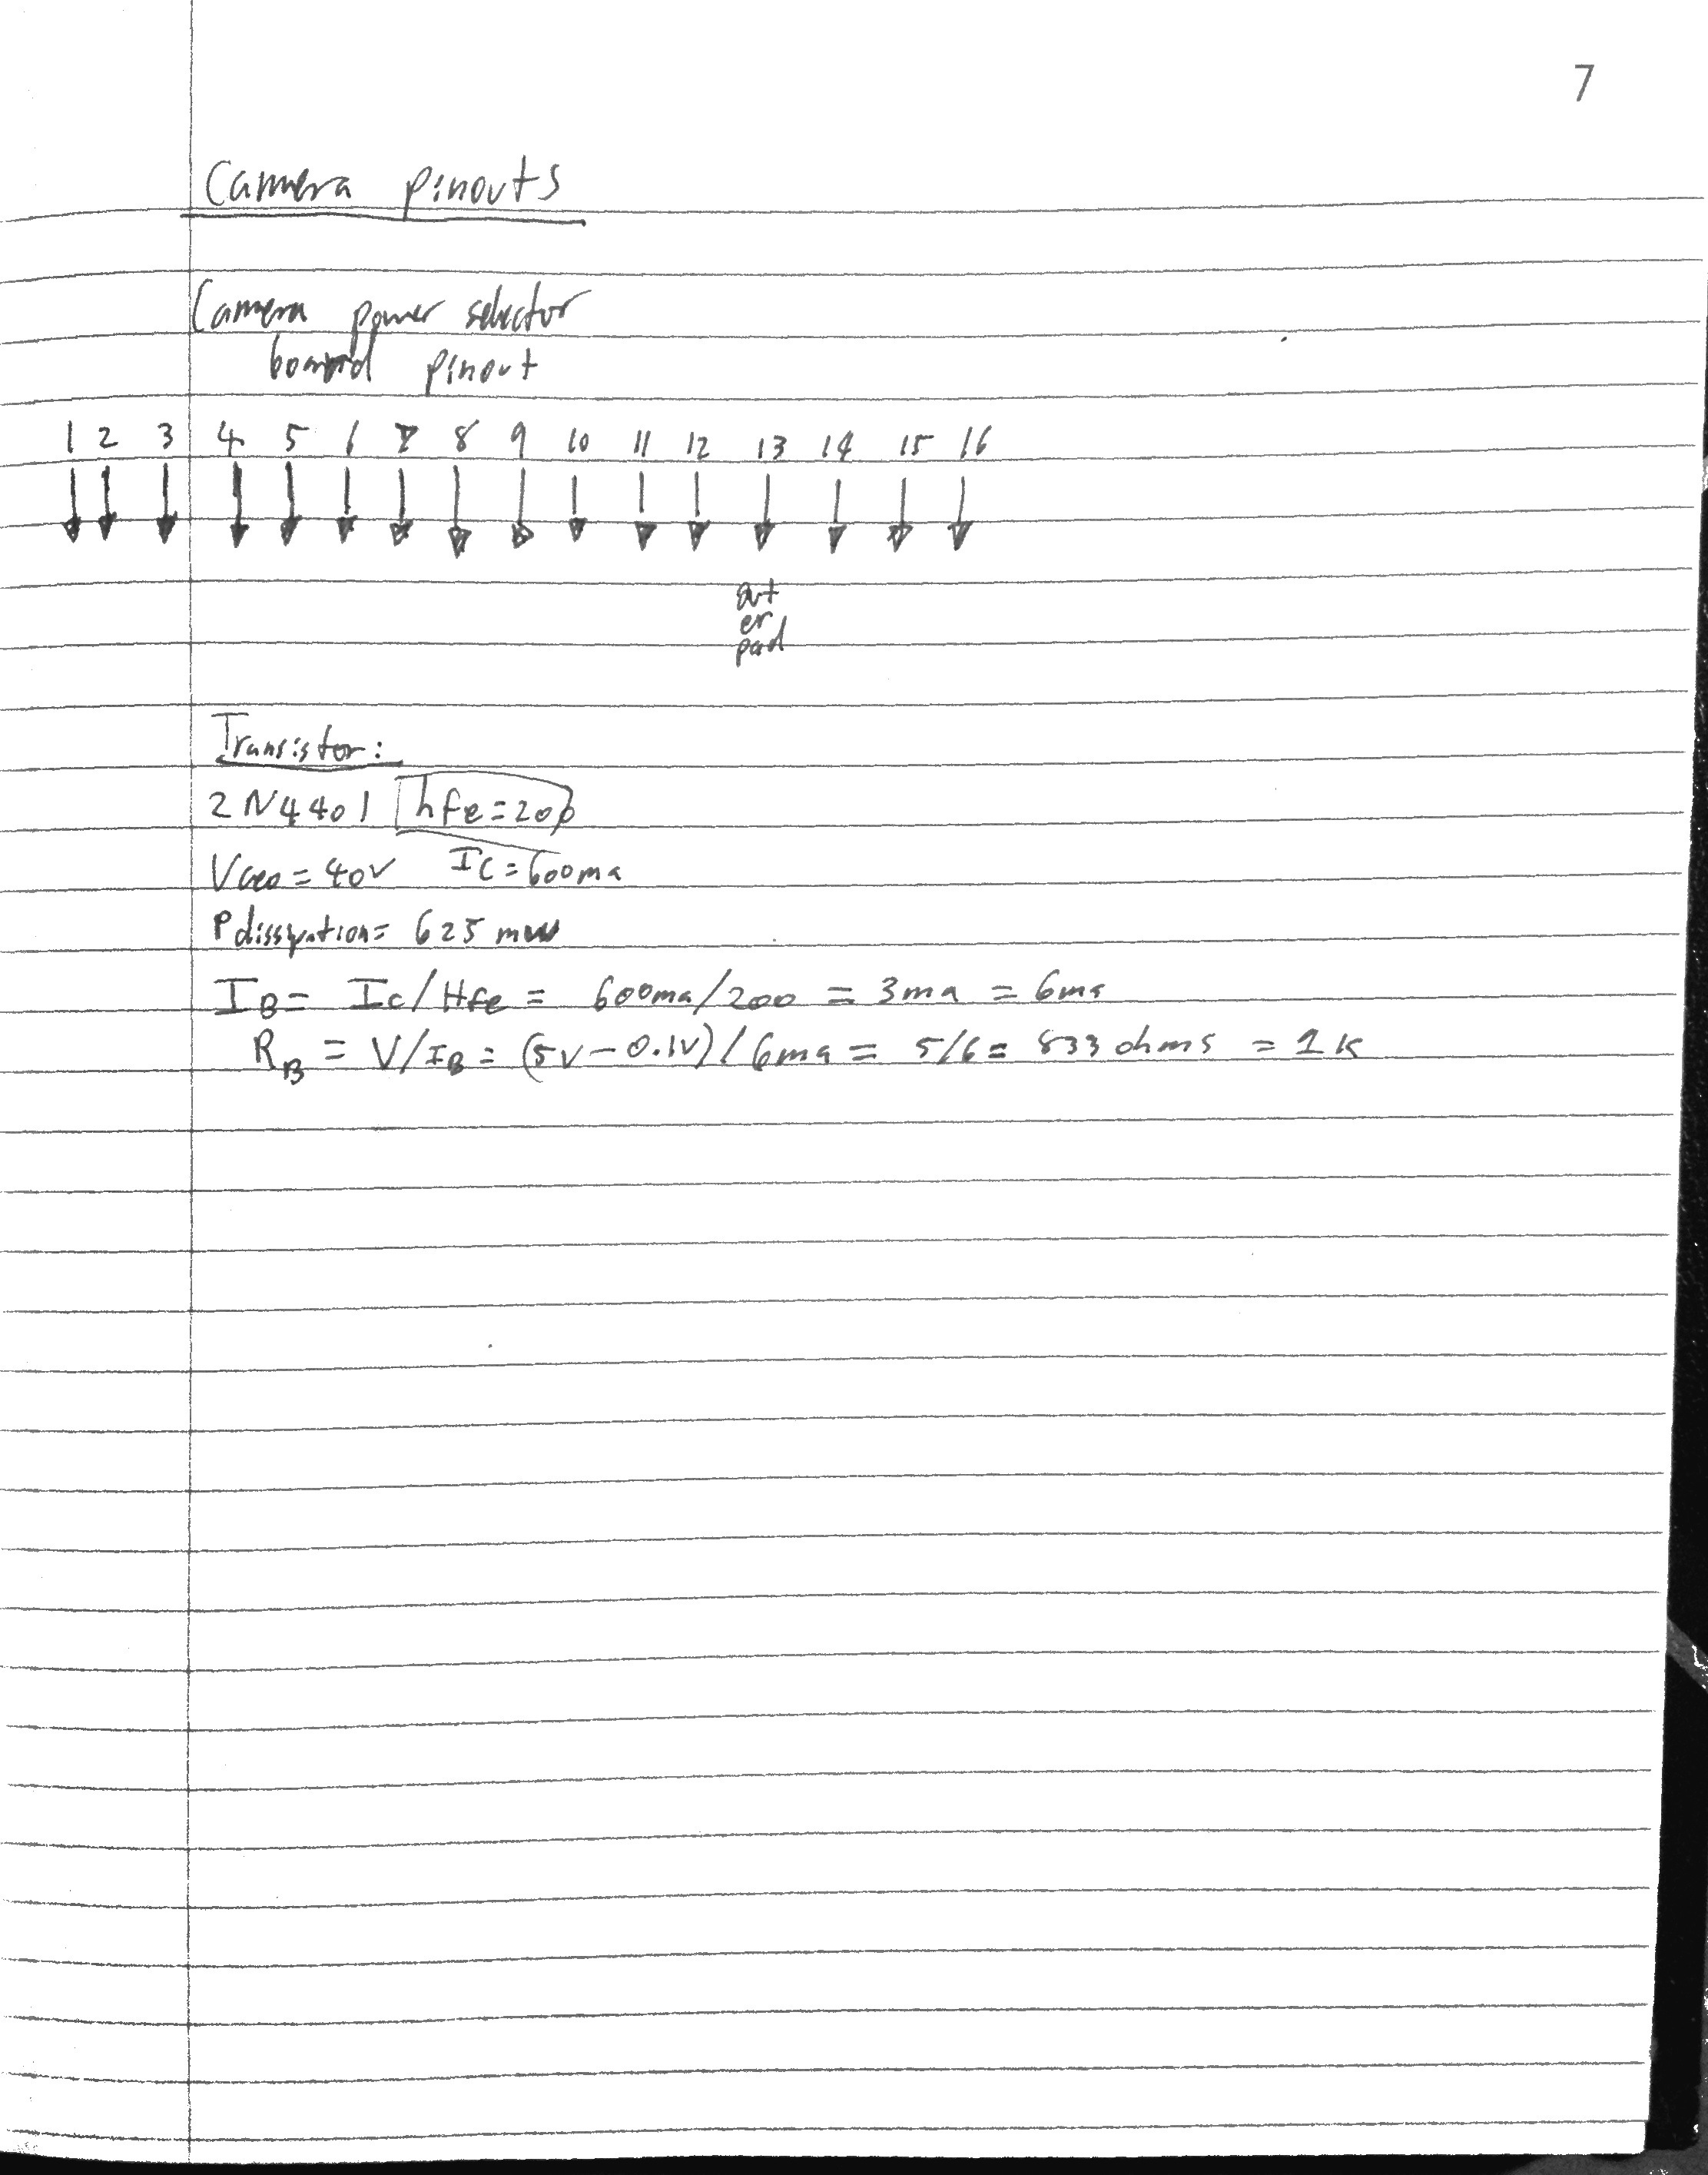 7
Camera pinouts
Camera power selector
board pinout
1 2 3 4 5 6 7 8 9 10 11 12 13 14 15 16
out
er
pad
Transistor:
2N4401 hfe=200
Vceo=40v Ic=600ma
P dissipation= 625 mw
IB= Ic/Hfe = 600ma/200 = 3ma = 6ma
RB = V/IB = (5v-0.1v)/6ma = 5/6= 833 ohms = 1k